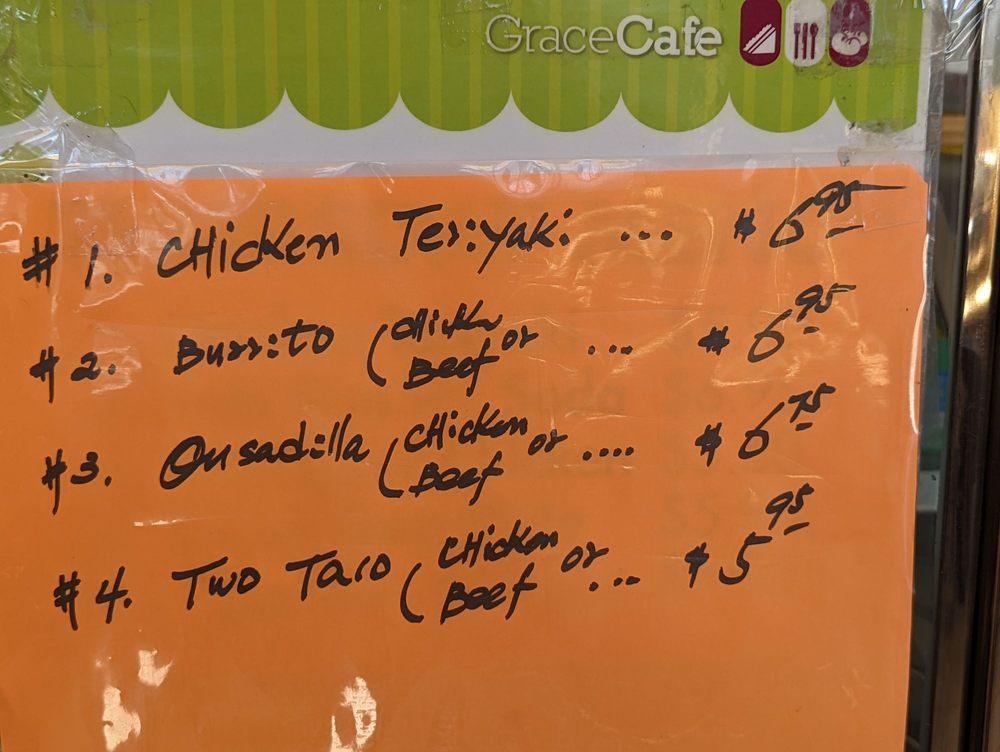 GraceCafe
#1. CHicken Teriyaki ... $6.95
#2. Burrito (CHicken or Beef ... $6.95
#3. Qusadilla (CHicken or Beef .... $6.75
#4. Two Taco (CHicken or Beef ... $5.95